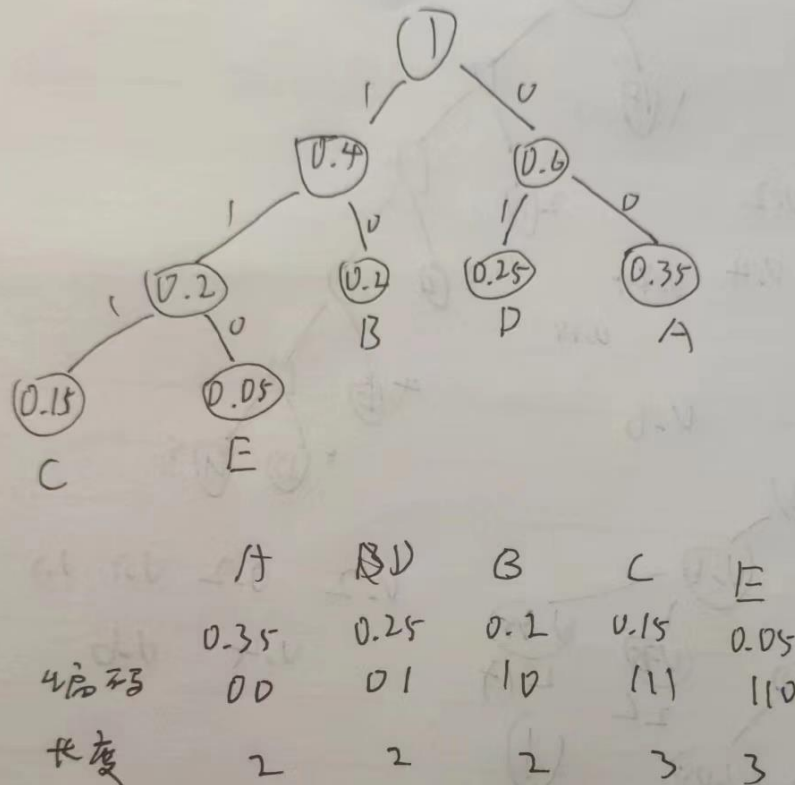 1
1 0
0.4 0.6
1 0 1 0
0.2 0.2 0.25 0.35
1 0 B D A
0.15 0.05
C E
A D B C E
0.35 0.25 0.2 0.15 0.05
编码 00 01 10 111 110
长度 2 2 2 3 3